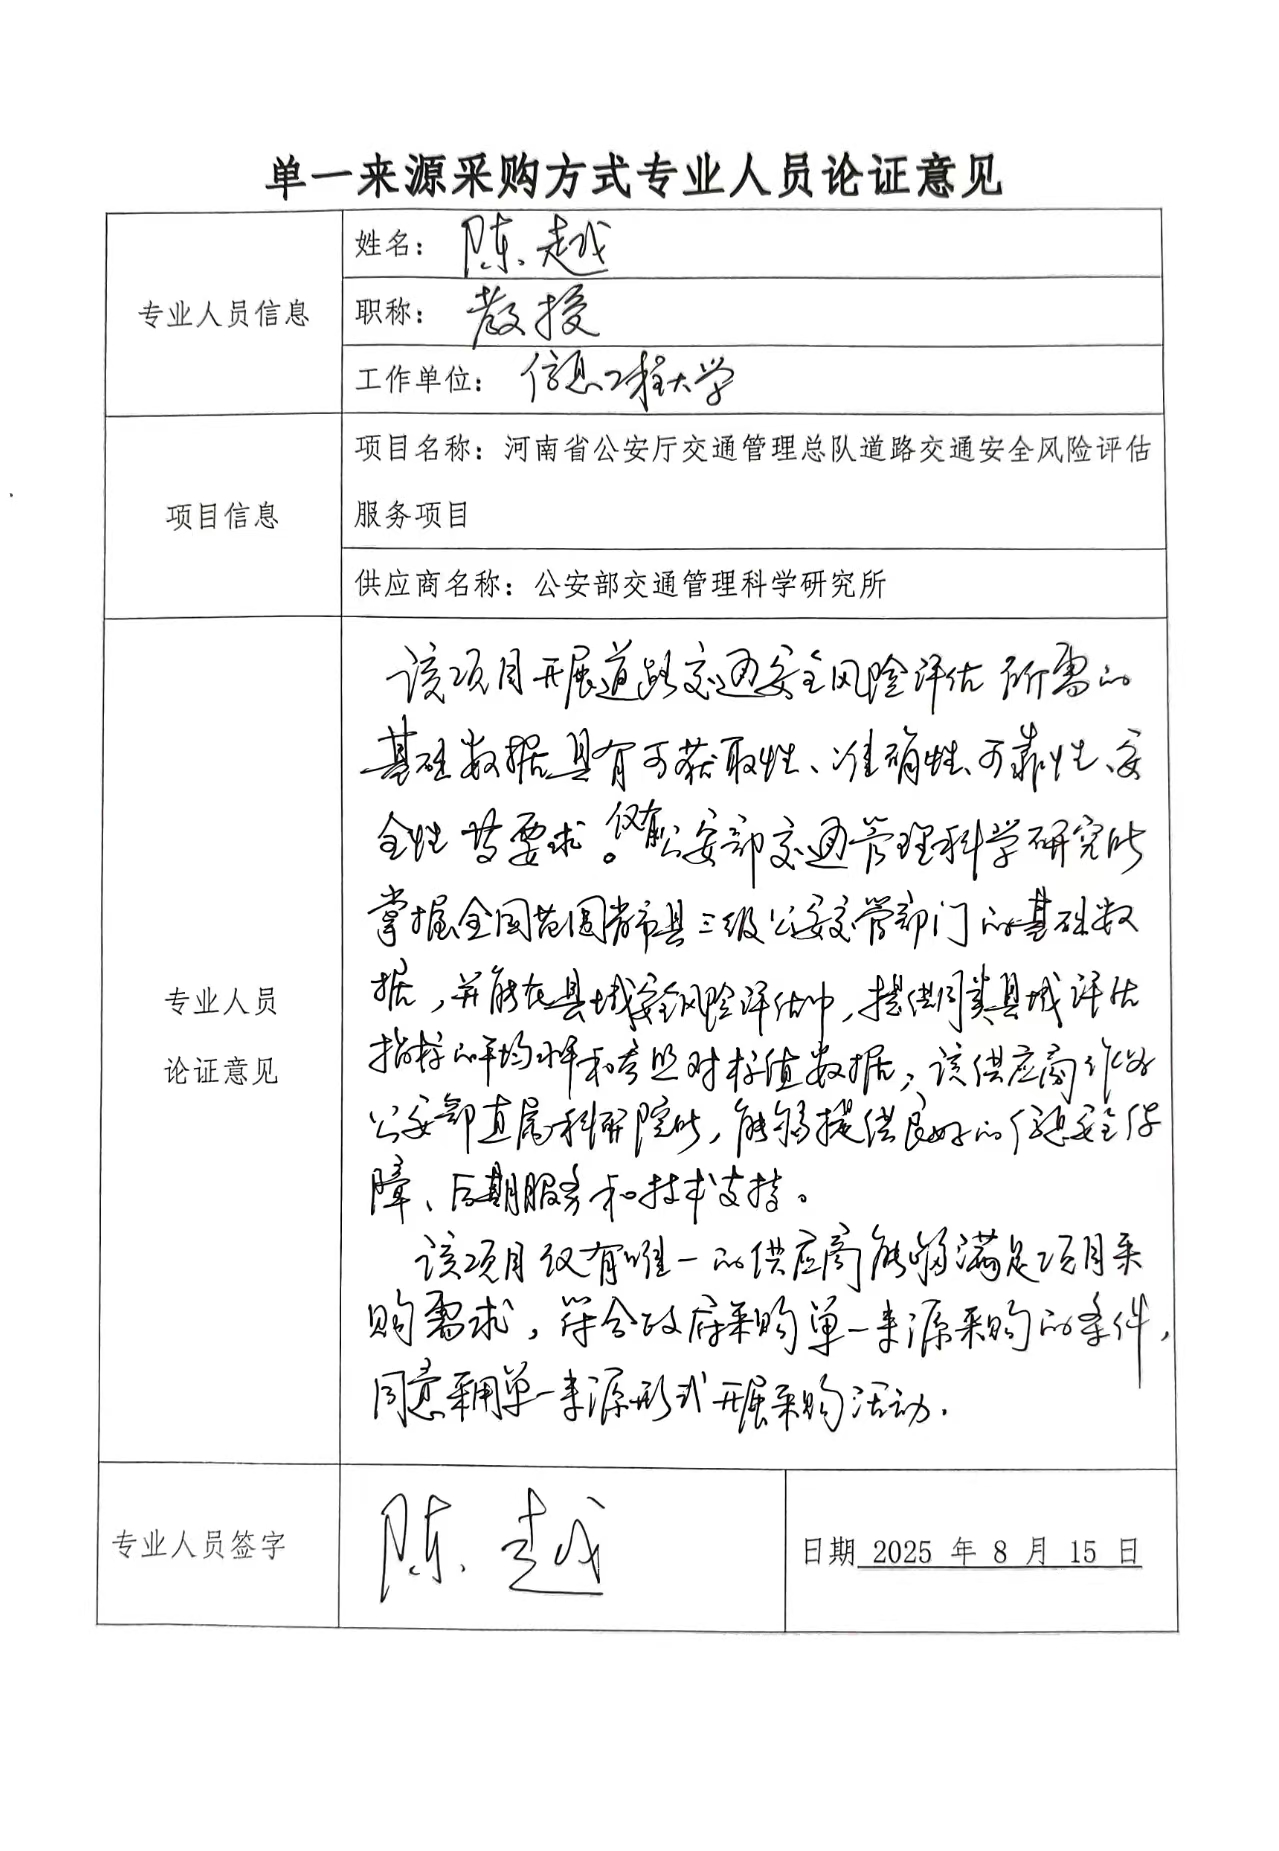 单一来源采购方式专业人员论证意见
专业人员信息
姓名：陈越
职称：教授
工作单位：信息工程大学
项目信息
项目名称：河南省公安厅交通管理总队道路交通安全风险评估
服务项目
供应商名称：公安部交通管理科学研究所
专业人员
论证意见
该项目开展道路交通安全风险评估所需的
基础数据具有可获取性、准确性、可靠性、安
全性等要求。仅有公安部交通管理科学研究所
掌握全国范围省市县三级公安交管部门的基础数
据，并能在县域安全风险评估中，提供同类县域评估
指标的平均水平和参照对标值数据，该供应商作为
公安部直属科研院所，能够提供良好的信息安全保
障、后期服务和技术支持。
该项目仅有唯一的供应商能够满足项目采
购需求，符合政府采购单一来源采购的条件，
同意采用单一来源形式开展采购活动.
专业人员签字
陈越
日期 2025 年 8 月 15 日